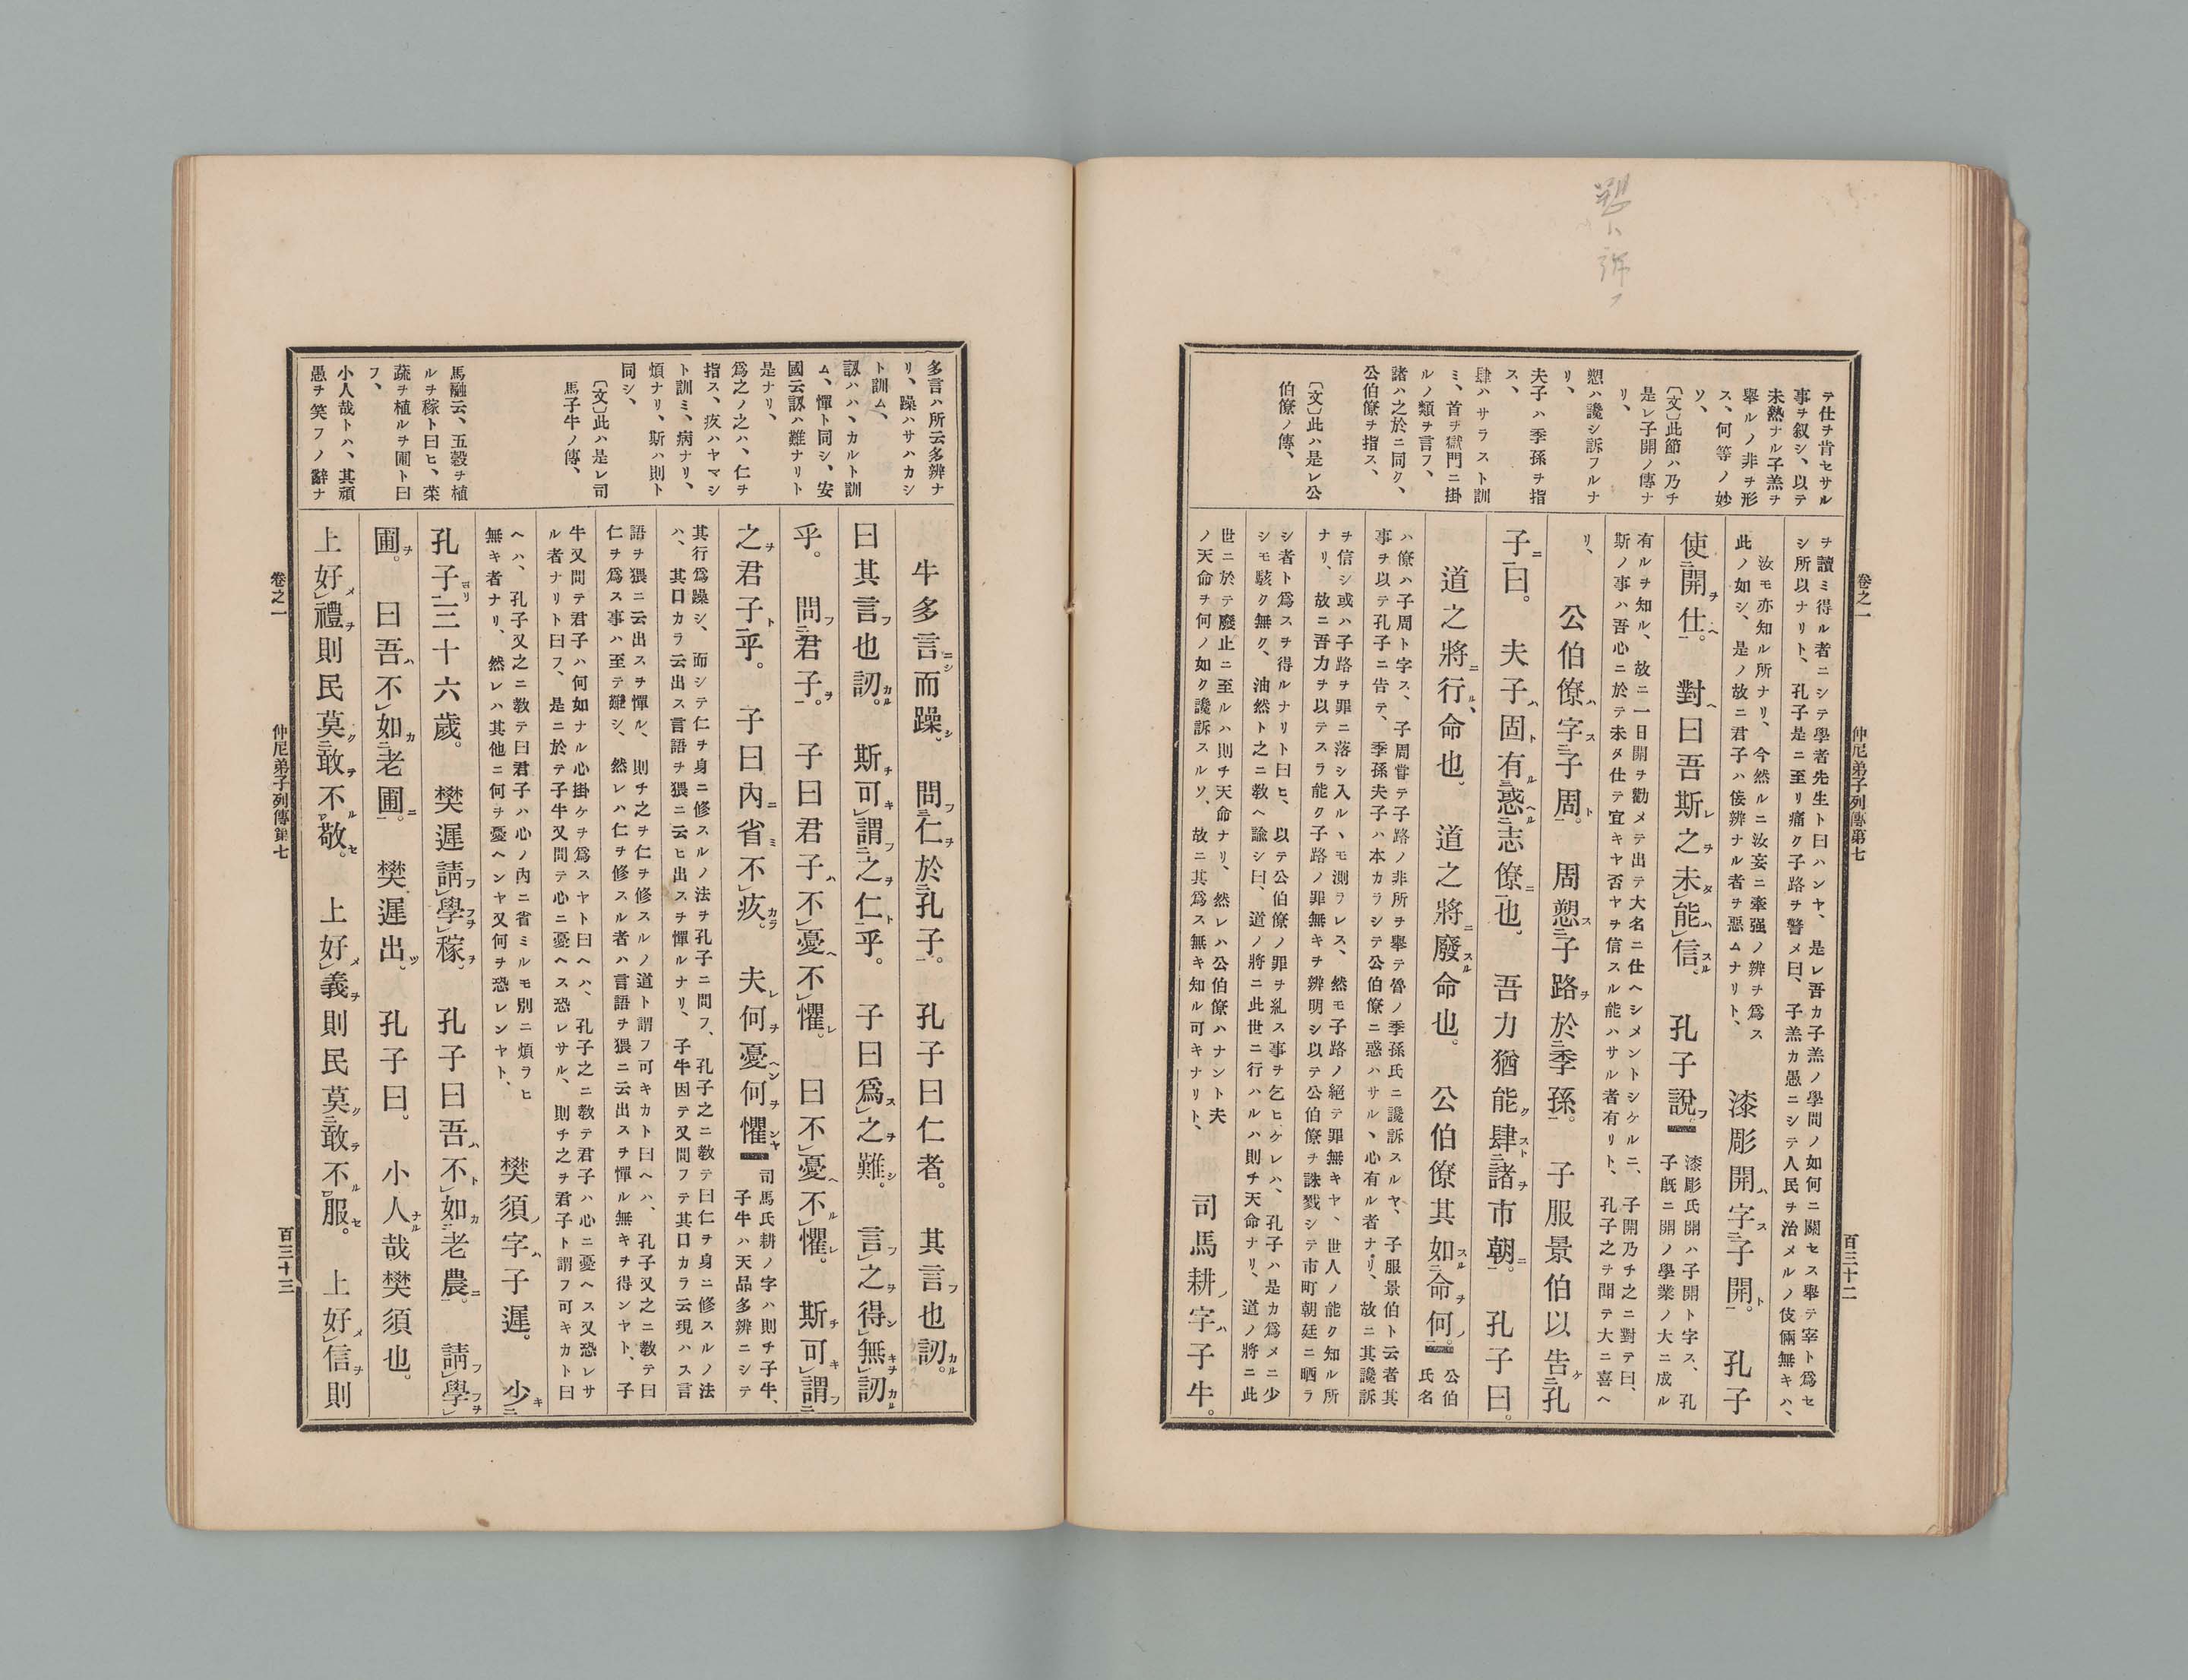 愬ハ訴フ
テ仕ヲ肯セサル
事ヲ叙シ、以テ
未熟ナル子羔ヲ
擧ルノ非ヲ形
ス、何等ノ妙
ソ、
〔文〕此節ハ乃チ
是レ子開ノ傳ナ
リ、
愬ハ讒シ訴フルナ
リ、
夫子ハ季孫ヲ指
ス、
肆ハサラスト訓
ミ、首ヲ獄門ニ掛
ルノ類ヲ言フ、
諸ハ之於ニ同ク、
公伯僚ヲ指ス、
〔文〕此ハ是レ公
伯僚ノ傳、
ヲ讀ミ得ル者ニシテ學者先生ト曰ハンヤ、是レ吾カ子羔ノ學問ノ如何ニ關セス擧テ宰ト爲セ
シ所以ナリト、孔子是ニ至リ痛ク子路ヲ警メ曰、子羔カ愚ニシテ人民ヲ治メルノ伎倆無キハ、
汝モ亦知ル所ナリ、今然ルニ汝妄ニ牽强ノ辨ヲ爲ス
此ノ如シ、是ノ故ニ君子ハ佞辨ナル者ヲ惡ムナリト、
漆彫開字子開。孔子
使開仕。對曰吾斯之未能信。孔子説。
漆彫氏開ハ子開ト字ス、孔
子既ニ開ノ學業ノ大ニ成ル
有ルヲ知ル、故ニ一日開ヲ勸メテ出テ大名ニ仕ヘシメントシケルニ、子開乃チ之ニ對テ曰、
斯ノ事ハ吾心ニ於テ未タ仕テ宜キヤ否ヤヲ信スル能ハサル者有リト、孔子之ヲ聞テ大ニ喜ヘ
リ、
公伯僚字子周。周愬子路於季孫。子服景伯以告孔
子曰。夫子固有惑志僚也。吾力猶能肆諸市朝。孔子曰。
道之將行、命也。道之將廢命也。公伯僚其如命何。
公伯
氏名
ハ僚ハ子周ト字ス、子周嘗テ子路ノ非所ヲ擧テ魯ノ季孫氏ニ讒訴スルヤ、子服景伯ト云者其
事ヲ以テ孔子ニ告テ、季孫夫子ハ本カラシテ公伯僚ニ惑ハサル丶心有ル者ナリ、故ニ其讒訴
ヲ信シ或ハ子路ヲ罪ニ落シ入ル丶モ測ラレス、然モ子路ノ絕テ罪無キヤ、世人ノ能ク知ル所
ナリ、故ニ吾力ヲ以テスラ能ク子路ノ罪無キヲ辨明シ以テ公伯僚ヲ誅戮シテ市町朝廷ニ晒ラ
シ者ト爲スヲ得ルナリト曰ヒ、以テ公伯僚ノ罪ヲ糺ス事ヲ乞ヒケレハ、孔子ハ是カ爲メニ少
シモ駭ク無ク、油然ト之ニ教ヘ諭シ曰、道ノ將ニ此世ニ行ハルハ則チ天命ナリ、道ノ將ニ此
世ニ於テ廢止ニ至ルハ則チ天命ナリ、然レハ公伯僚ハナント夫
ノ天命ヲ何ノ如ク讒訴スルソ、故ニ其爲ス無キ知ル可キナリト、
司馬耕字子牛。
卷之一 仲尼弟子列傳第七 百三十二
多言ハ所云多辨ナ
リ、躁ハサハカシ
ト訓ム、
訒ハハ、カルト訓
ム、憚ト同シ、安
國云訒ハ難ナリト
是ナリ、
爲之ノ之ハ、仁ヲ
指ス、疚ハヤマシ
ト訓ミ、病ナリ、
煩ナリ、斯ハ則ト
同シ、
〔文〕此ハ是レ司
馬子牛ノ傳、
馬融云、五穀ヲ植
ルヲ稼ト曰ヒ、菜
蔬ヲ植ルヲ圃ト曰
フ、
小人哉トハ、其頑
愚ヲ笑フノ辭ナ
牛多言而躁。問仁於孔子。孔子曰仁者。其言也訒。
曰其言也訒。斯可謂之仁乎。子曰爲之難。言之得無訒
乎。問君子。子曰君子不憂不懼。曰不憂不懼。斯可謂
之君子乎。子曰內省不疚。夫何憂何懼。
司馬氏耕ノ字ハ則チ子牛、
子牛ハ天品多辨ニシテ
其行爲躁シ、而シテ仁ヲ身ニ修スルノ法ヲ孔子ニ問フ、孔子之ニ教テ曰仁ヲ身ニ修スルノ法
ハ、其口カラ云出ス言語ヲ猥ニ云ヒ出スヲ憚ルナリ、子牛因テ又問フテ其口カラ云現ハス言
語ヲ猥ニ云出スヲ憚ル、則チ之ヲ仁ヲ修スルノ道ト謂フ可キカト曰ヘハ、孔子又之ニ教テ曰
仁ヲ爲ス事ハ至テ難シ、然レハ仁ヲ修スル者ハ言語ヲ猥ニ云出スヲ憚ル無キヲ得ンヤト、子
牛又問テ君子ハ何如ナル心掛ケヲ爲スヤト曰ヘハ、孔子之ニ教テ君子ハ心ニ憂ヘス又恐レサ
ル者ナリト曰フ、是ニ於テ子牛又問テ心ニ憂ヘス恐レサル、則チ之ヲ君子ト謂フ可キカト曰
ヘハ、孔子又之ニ教テ曰君子ハ心ノ內ニ省ミルモ別ニ煩ラヒ
無キ者ナリ、然レハ其他ニ何ヲ憂ヘンヤ又何ヲ恐レンヤト、
樊須字子遲。少
孔子三十六歲。樊遲請學稼。孔子曰吾不如老農。請學
圃。曰吾不如老圃。樊遲出。孔子曰。小人哉樊須也。
上好禮則民莫敢不敬。上好義則民莫敢不服。上好信則
卷之一 仲尼弟子列傳第七 百三十三